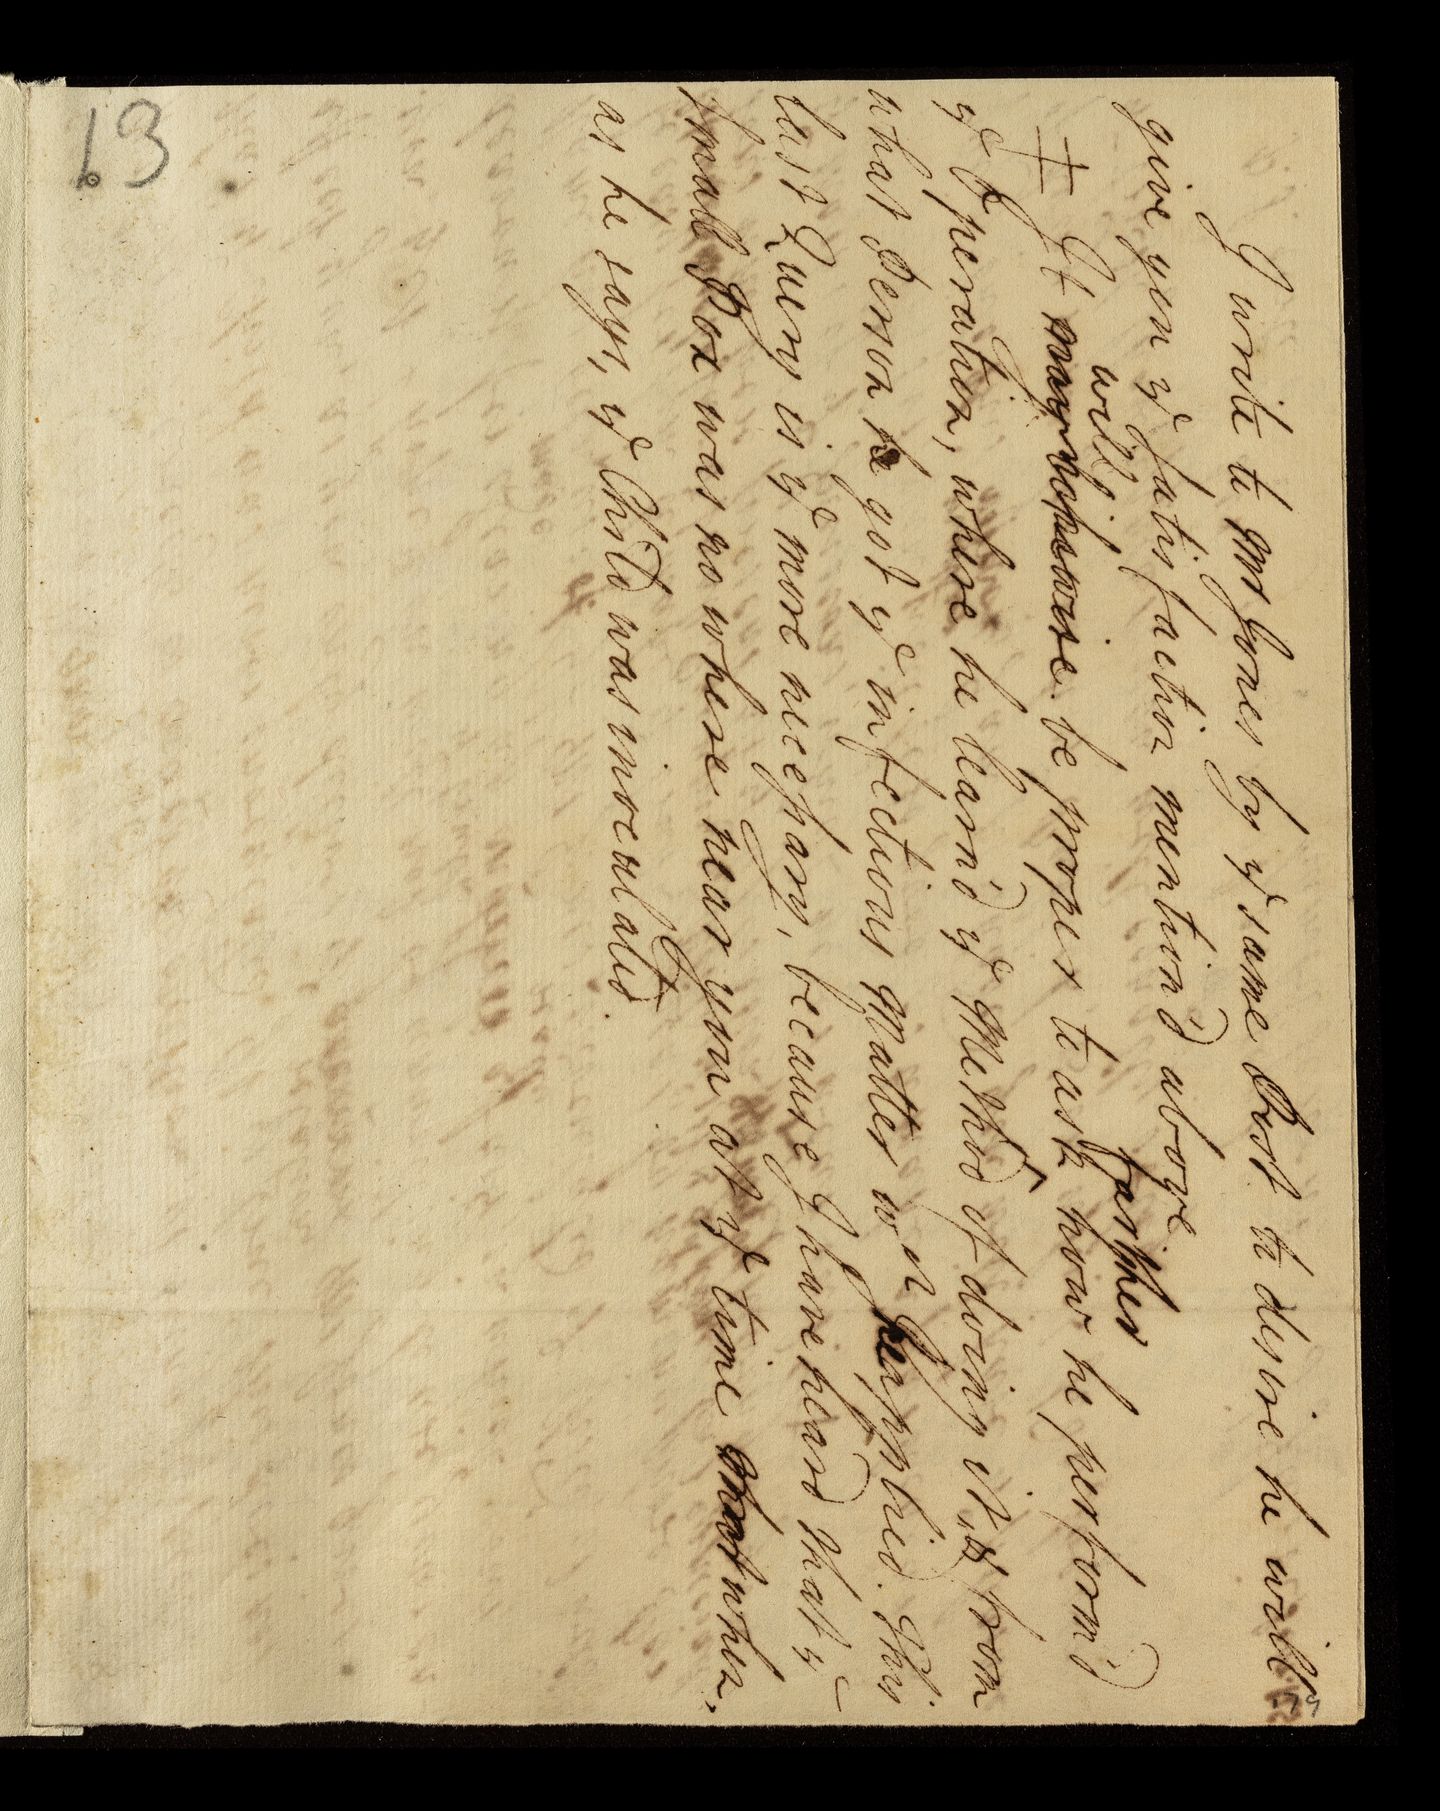 179
I write to Mr Jones by ye same Post to desire he will
give you ye satisfaction mention'd above
will farther
+ It may be likewise be proper to ask how he perform'd
ye Operation, where he learn'd ye Method of doing it, & from
what Person he got ye infectious Matter wch he applied. This
last Query is ye more necessary, because I have heard that ye
small Pox was no where near you at ye time when,
as he says, ye Child was inoculated.
13